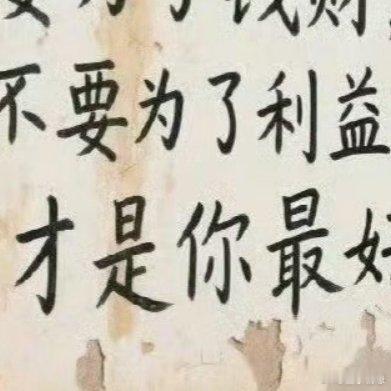 要为了钱财
不要为了利益
才是你最好